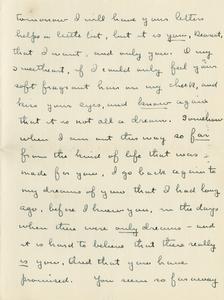 tomorrow I will have your letter
helps a little bit, but it is you, dearest,
that I want, and only you. O my
sweetheart, if I could only feel your
soft fragrant hair on my cheek, and
kiss your eyes, and know again
that it is not all a dream. Somehow
when I am out this way so far
from the kind of life that was
made for you, I go back again to
my dreams of you that I had long
ago, before I knew you, in the days
when there were only dreams - and
it is hard to believe that there really
is you, and that you have
promised. You seem so far away